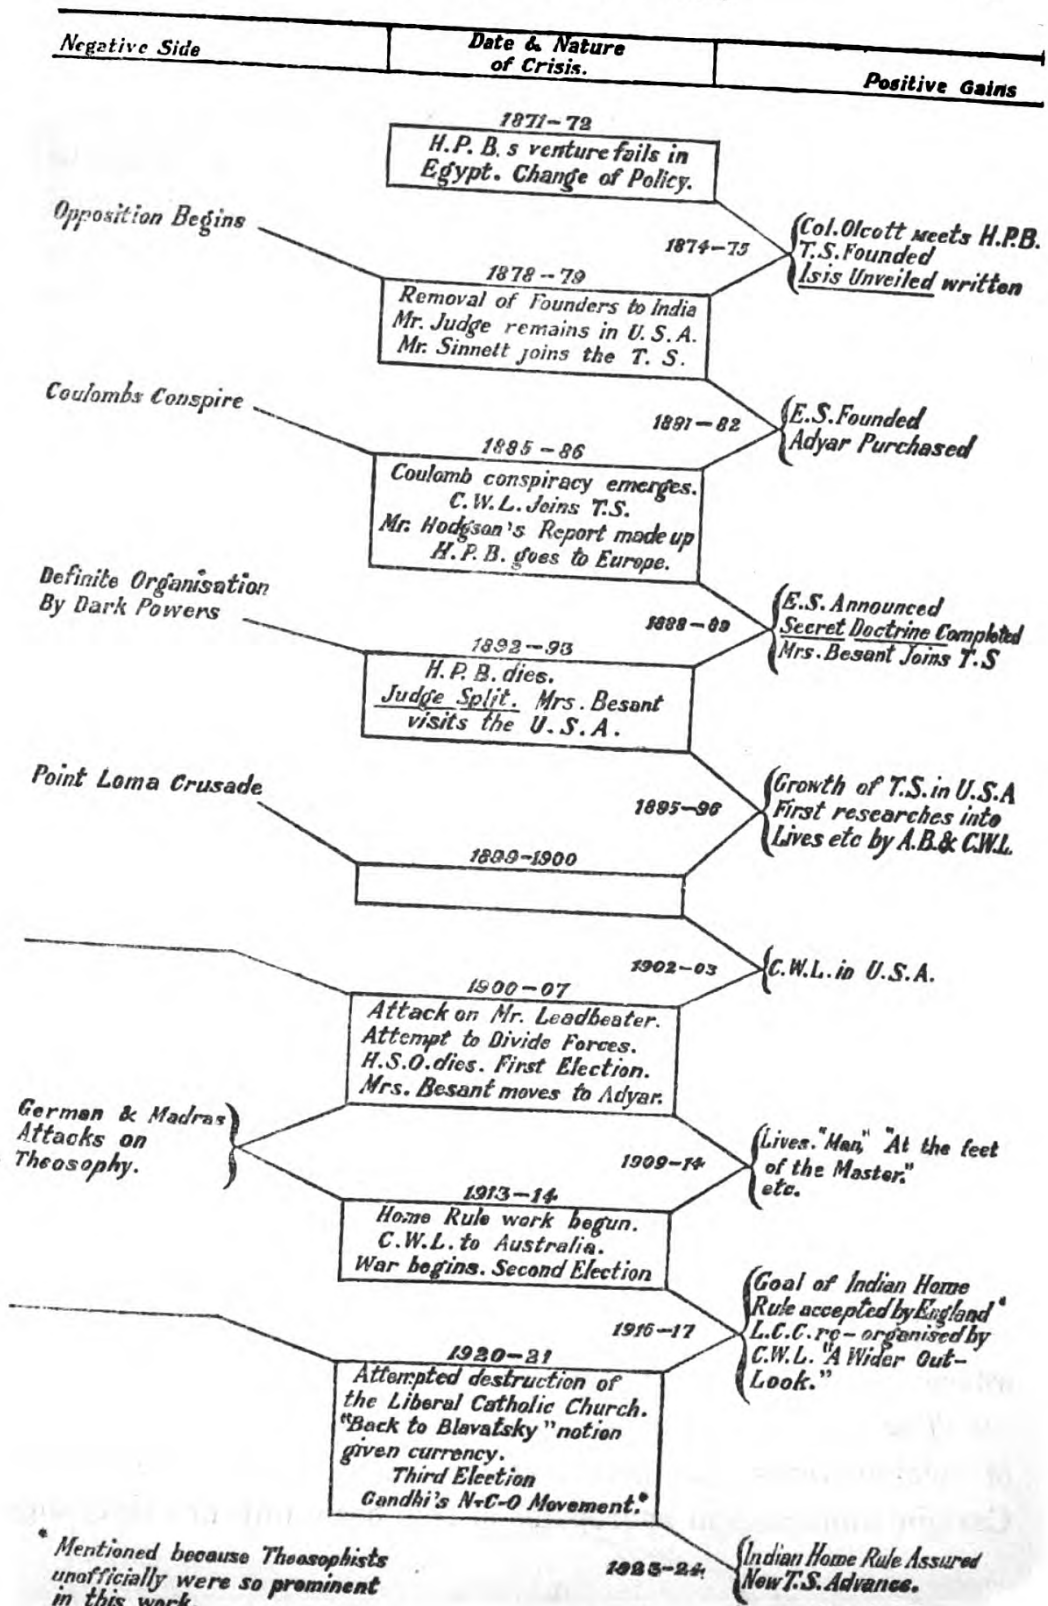 Negative Side
Date & Nature
of Crisis.
Positive Gains
1871-72
H.P.B.s venture fails in
Egypt. Change of Policy.
Opposition Begins
1874-75
Col. Olcott Meets H.P.B.
T.S. Founded
Isis Unveiled written
1878-79
Removal of Founders to India
Mr. Judge remains in U.S.A.
Mr. Sinnett joins the T. S.
Coulombs Conspire
1891-82
E.S. Founded
Adyar Purchased
1885-86
Coulomb conspiracy emerges.
C.W.L. Joins T.S.
Mr. Hodgson's Report made up
H.P.B. goes to Europe.
Definite Organisation
By Dark Powers
1888-89
E.S. Announced
Secret Doctrine Completed
Mrs. Besant Joins T.S
1892-93
H.P.B. dies.
Judge Split. Mrs. Besant
visits the U.S.A.
Point Loma Crusade
1895-96
Growth of T.S. in U.S.A
First researches into
Lives etc by A.B. & C.W.L.
1899-1900
1902-03
C.W.L. in U.S.A.
1900-07
Attack on Mr. Leadbeater.
Attempt to Divide Forces.
H.S.O. dies. First Election.
Mrs. Besant moves to Adyar.
German & Madras
Attacks on
Theosophy.
1909-14
Lives. "Man," "At the feet
of the Master."
etc.
1913-14
Home Rule work begun.
C.W.L. to Australia.
War begins. Second Election
1916-17
Goal of Indian Home
Rule accepted by England *
L.C.C. re-organised by
C.W.L. "A Wider Out-
Look."
1920-21
Attempted destruction of
the Liberal Catholic Church.
"Back to Blavatsky" notion
given currency.
Third Election
Gandhi's N-C-O Movement.*
1923-24.
Indian Home Rule Assured
New T.S. Advance.
* Mentioned because Theosophists
unofficially were so prominent
in this work.